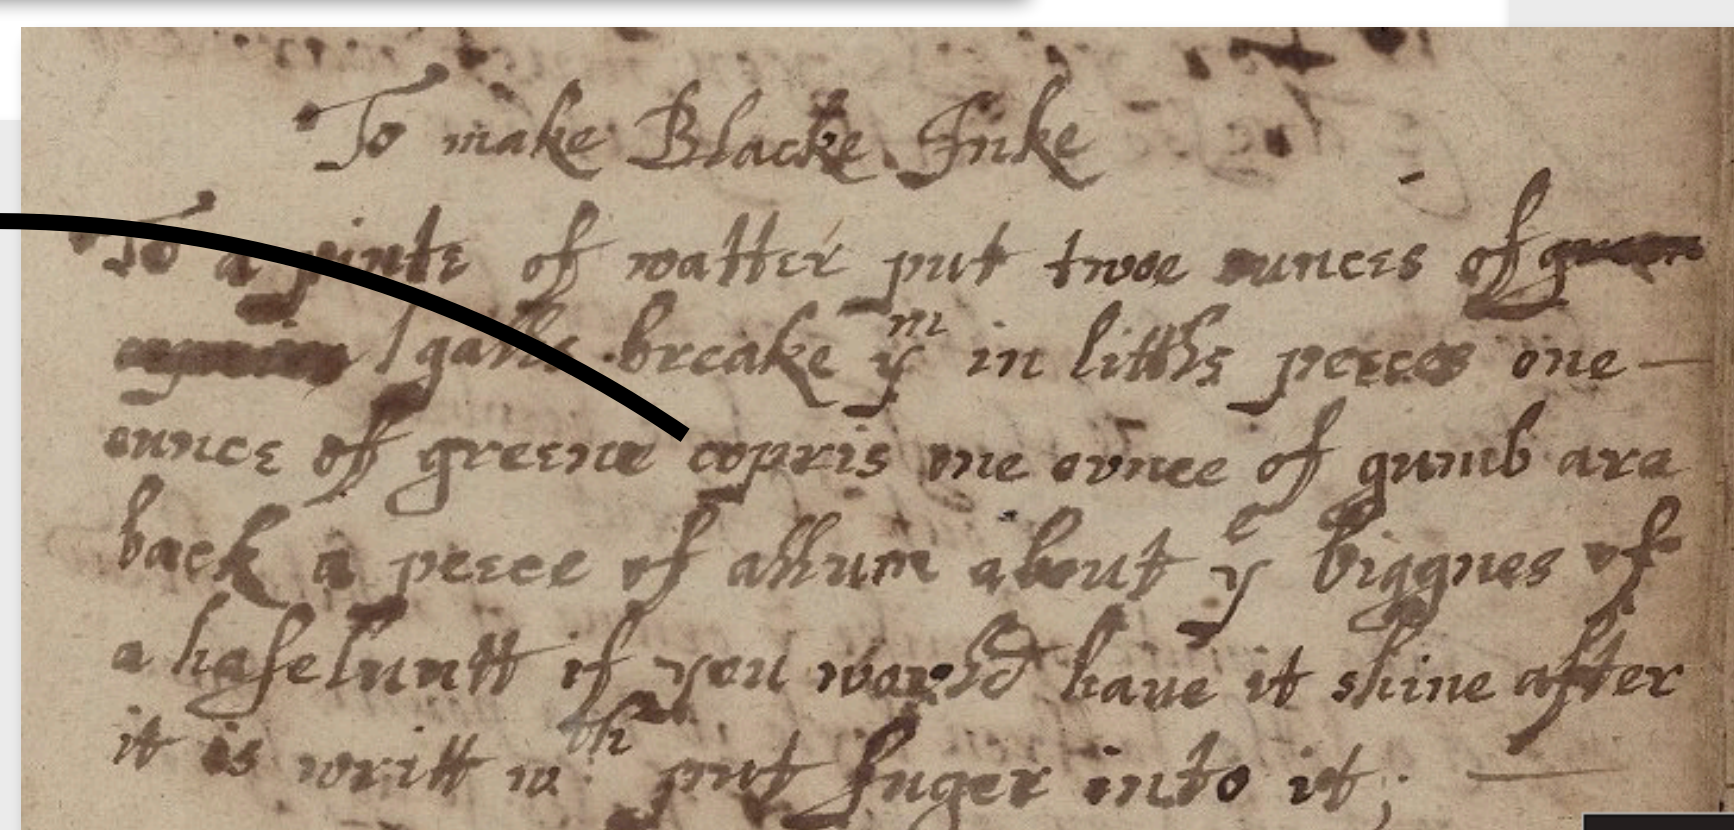 To make Blacke Inke
To a pinte of watter put twoe ounces of
galls breake yᵐ in littls peeces one
ounce of greene copris one ounce of gumb ara
back a peece of allum about yᵉ biggnes of
a haselnutt if you would haue it shine after
it is writt wᵗʰ put suger into it;